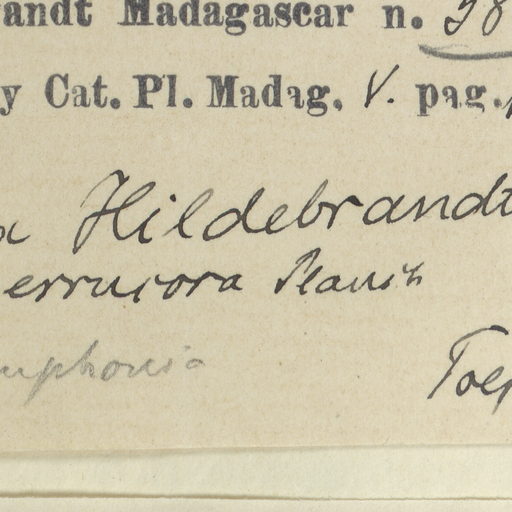 andt Madagascar n. 38
y Cat. Pl. Madag. V. pag.
Hildebrandt
errucora Planch
mphonia